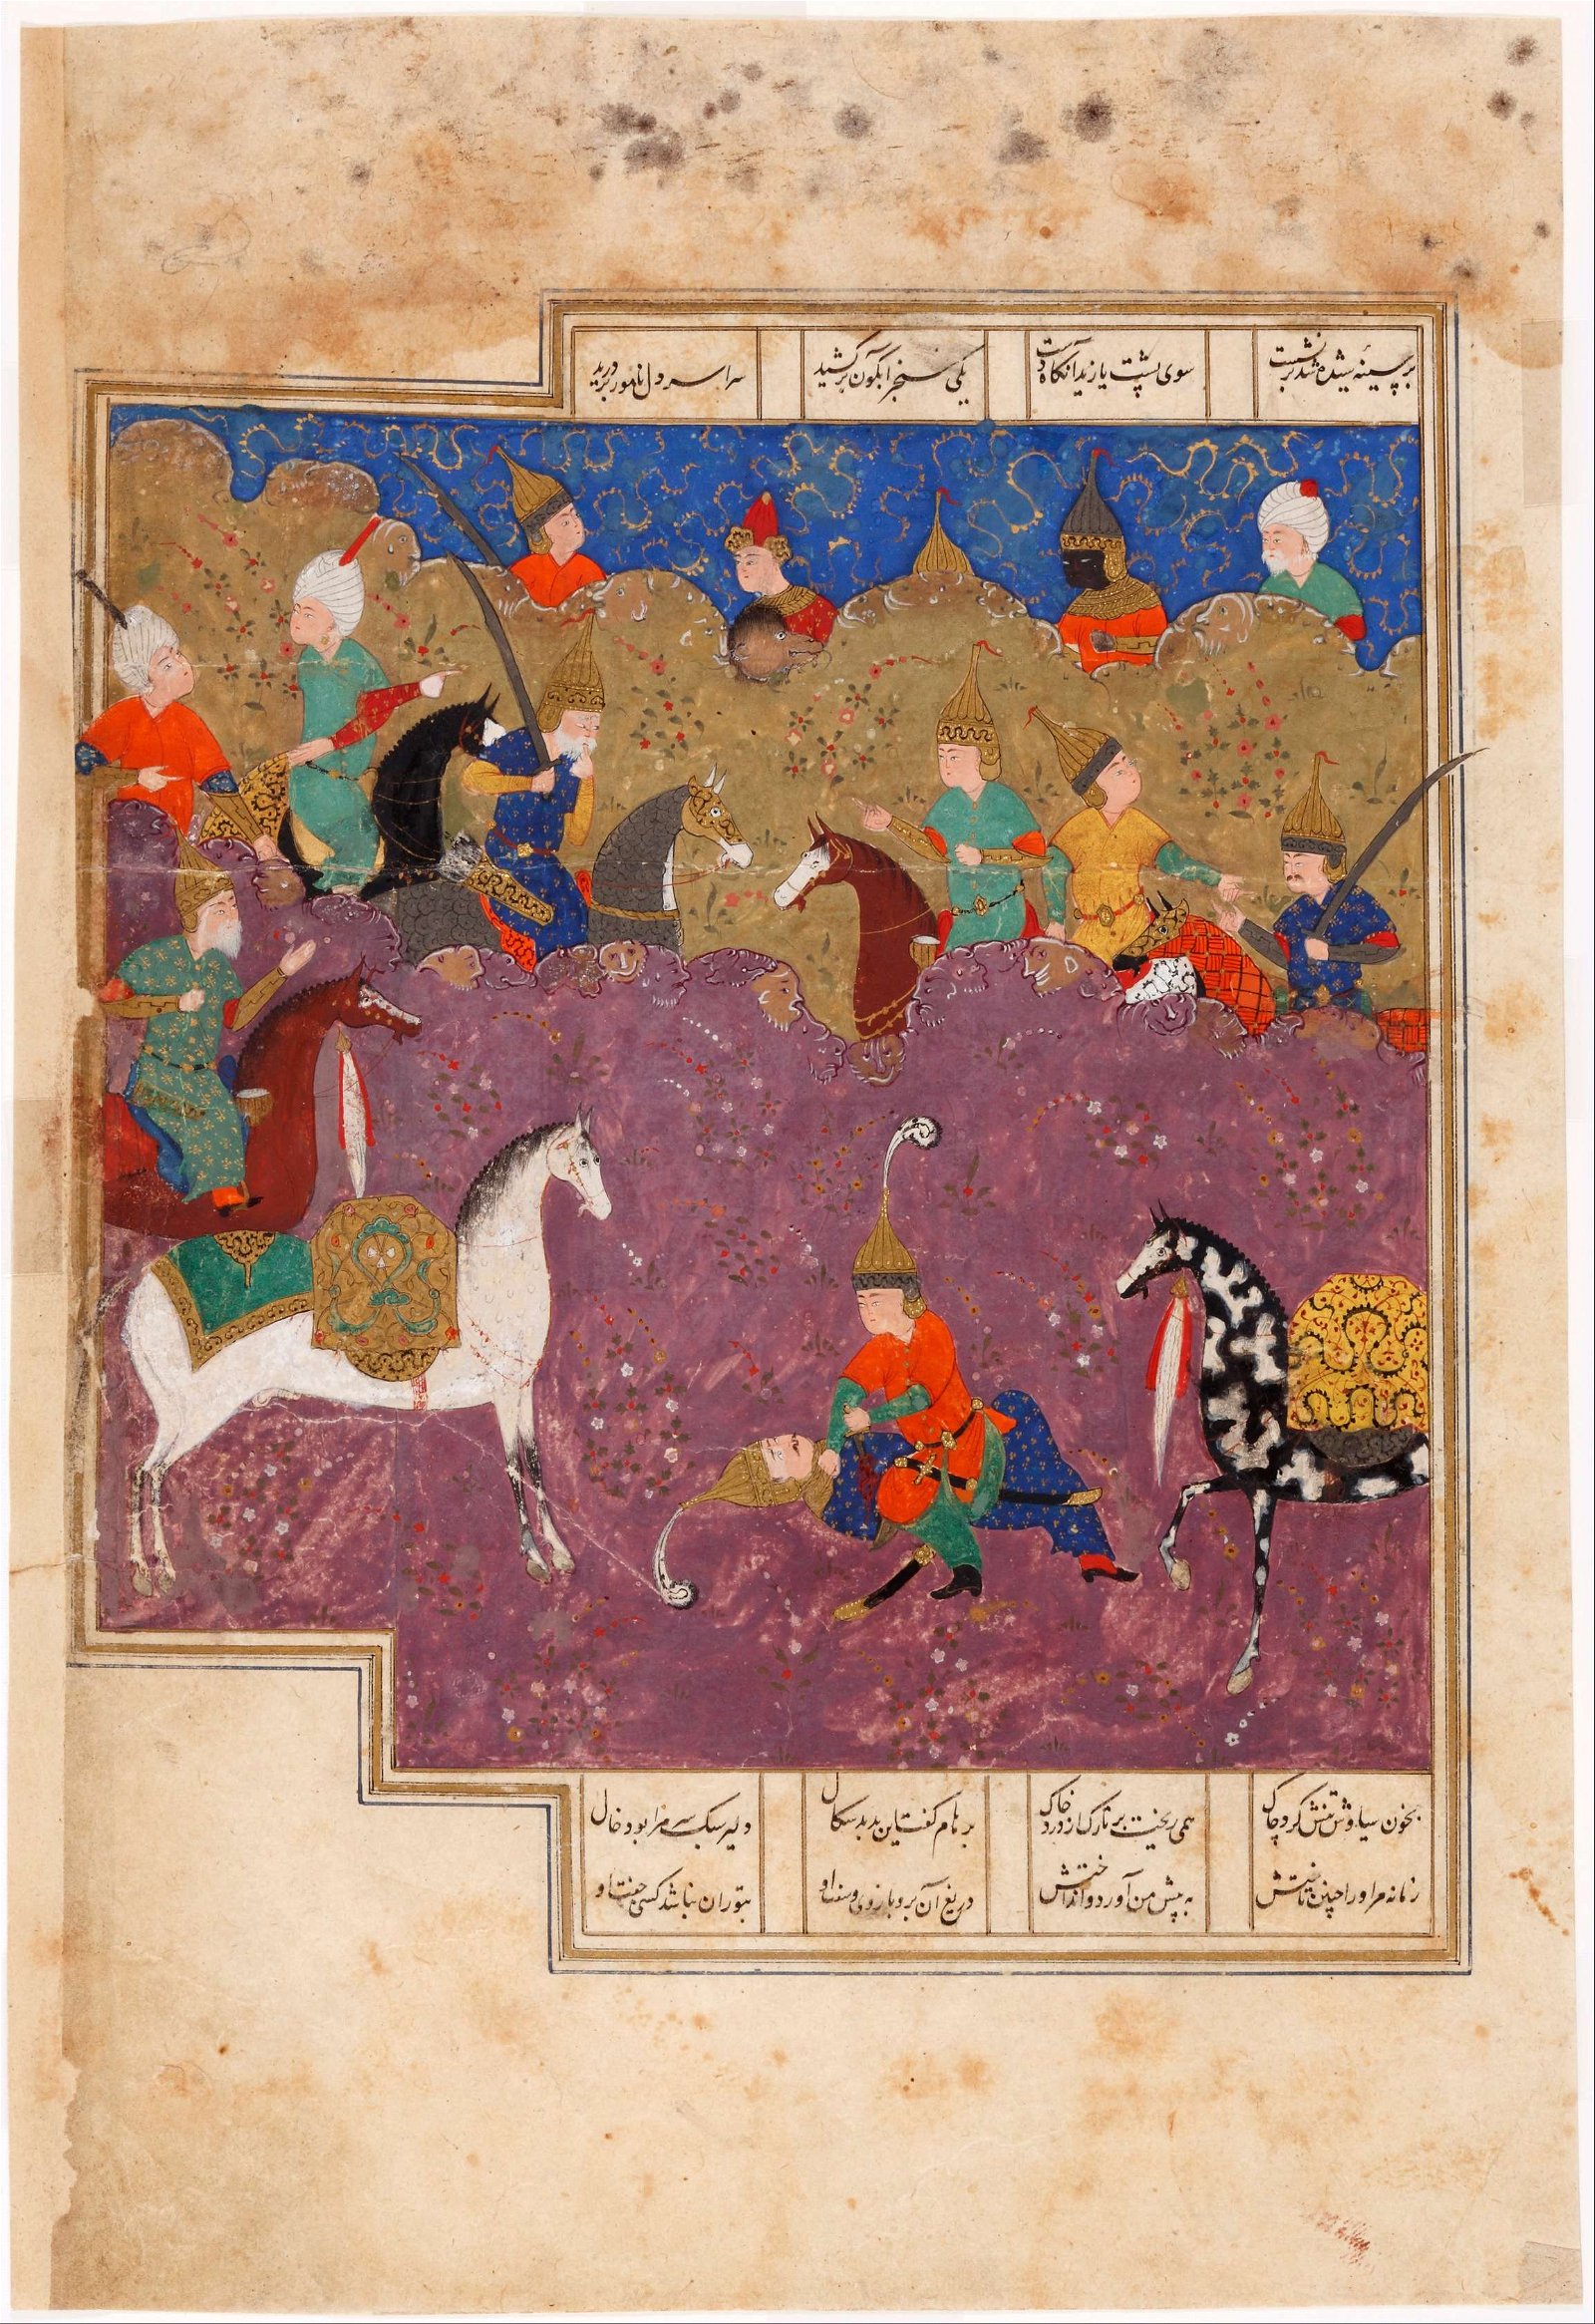 بر سینهٔ شیده شد بر نشست سوی پشت یازید آنگاه دست یکی خنجر آبگون بر کشید سراسر دل نامور بر درید
بخون سیاوش تنش کرد چاک همی ریخت بر تارک از درد خاک برهام گفت این بد بدسگال دلیر سبک سر مرا بود خال
زمانه مر او را چنین تاختش به پیش من آورد و انداختش دریغ آن بر و بازوی و سفت او بتوران نباشد کسی جفت او